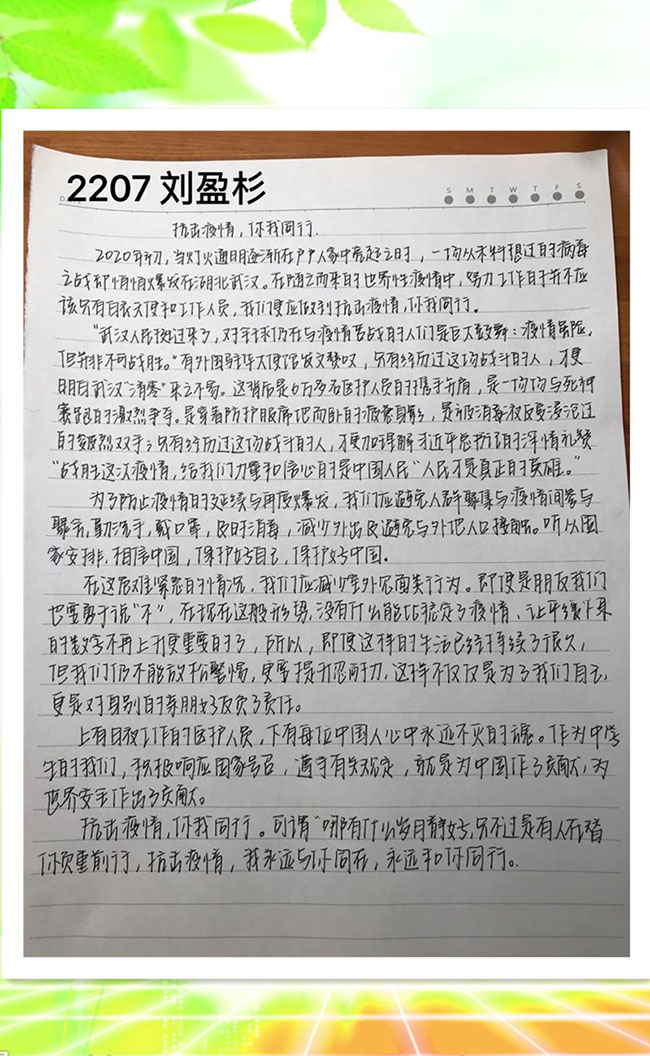 2207 刘盈杉
S M T W T F S
抗击疫情，你我同行.
2020年初，当灯火通明逐渐在户户人家中亮起之时，一场从未料想过的病毒
之战却悄悄爆发在湖北武汉。在随之而来的世界性疫情中，努力工作的并不应
该只有白衣天使和工作人员，我们更应做到抗击疫情，你我同行。
"武汉人民挺过来了，对全球仍在与疫情苦战的人们是巨大鼓舞：疫情虽险，
但并非不可战胜。"有外国驻华大使馆发文赞叹，只有经历过这场战斗的人，才更
明白武汉"清零"来之不易。这背后是6万多名医护人员的携手并肩，是一场场与死神
赛跑的激烈争夺。是穿着防护服席地而卧的疲惫身影，是被消毒液反复浸泡过
的皲裂双手；只有经历过这场战斗的人，才更加理解习近平总书记的深情礼赞
"战胜这次疫情，给我们力量和信心的是中国人民""人民才是真正的英雄。"
为了防止疫情的延续与再度爆发，我们应避免人群聚集与疫情间参与
聚会，勤洗手，戴口罩，及时消毒，减少外出及避免与外地人口接触。听从国
家安排，相信中国，保护好自己，保护好中国.
在这危难紧急的情况，我们应减少室外见面类行为。即便是朋友我们
也要勇于说"不"，在现在这般形势，没有什么能比稳定了疫情、让平缓下来
的数字不再上升更重要的了，所以，即便这样的生活已经持续了很久，
但我们仍不能放松警惕，更要提升忍耐力，这样不仅仅是为了我们自己，
更是对身别的亲朋好友负了责任。
上有日夜工作的医护人员，下有每位中国人心中永远不灭的魂。作为中学
生的我们，积极响应国家号召，遵守有关规定，就是为中国作了贡献，为
世界安全作出了贡献。
抗击疫情，你我同行。可谓"哪有什么岁月静好，只不过是有人在替
你负重前行，抗击疫情，我永远与你同在，永远和你同行。